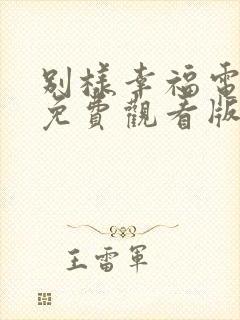 別樣幸福電
免費觀看版
王雷軍